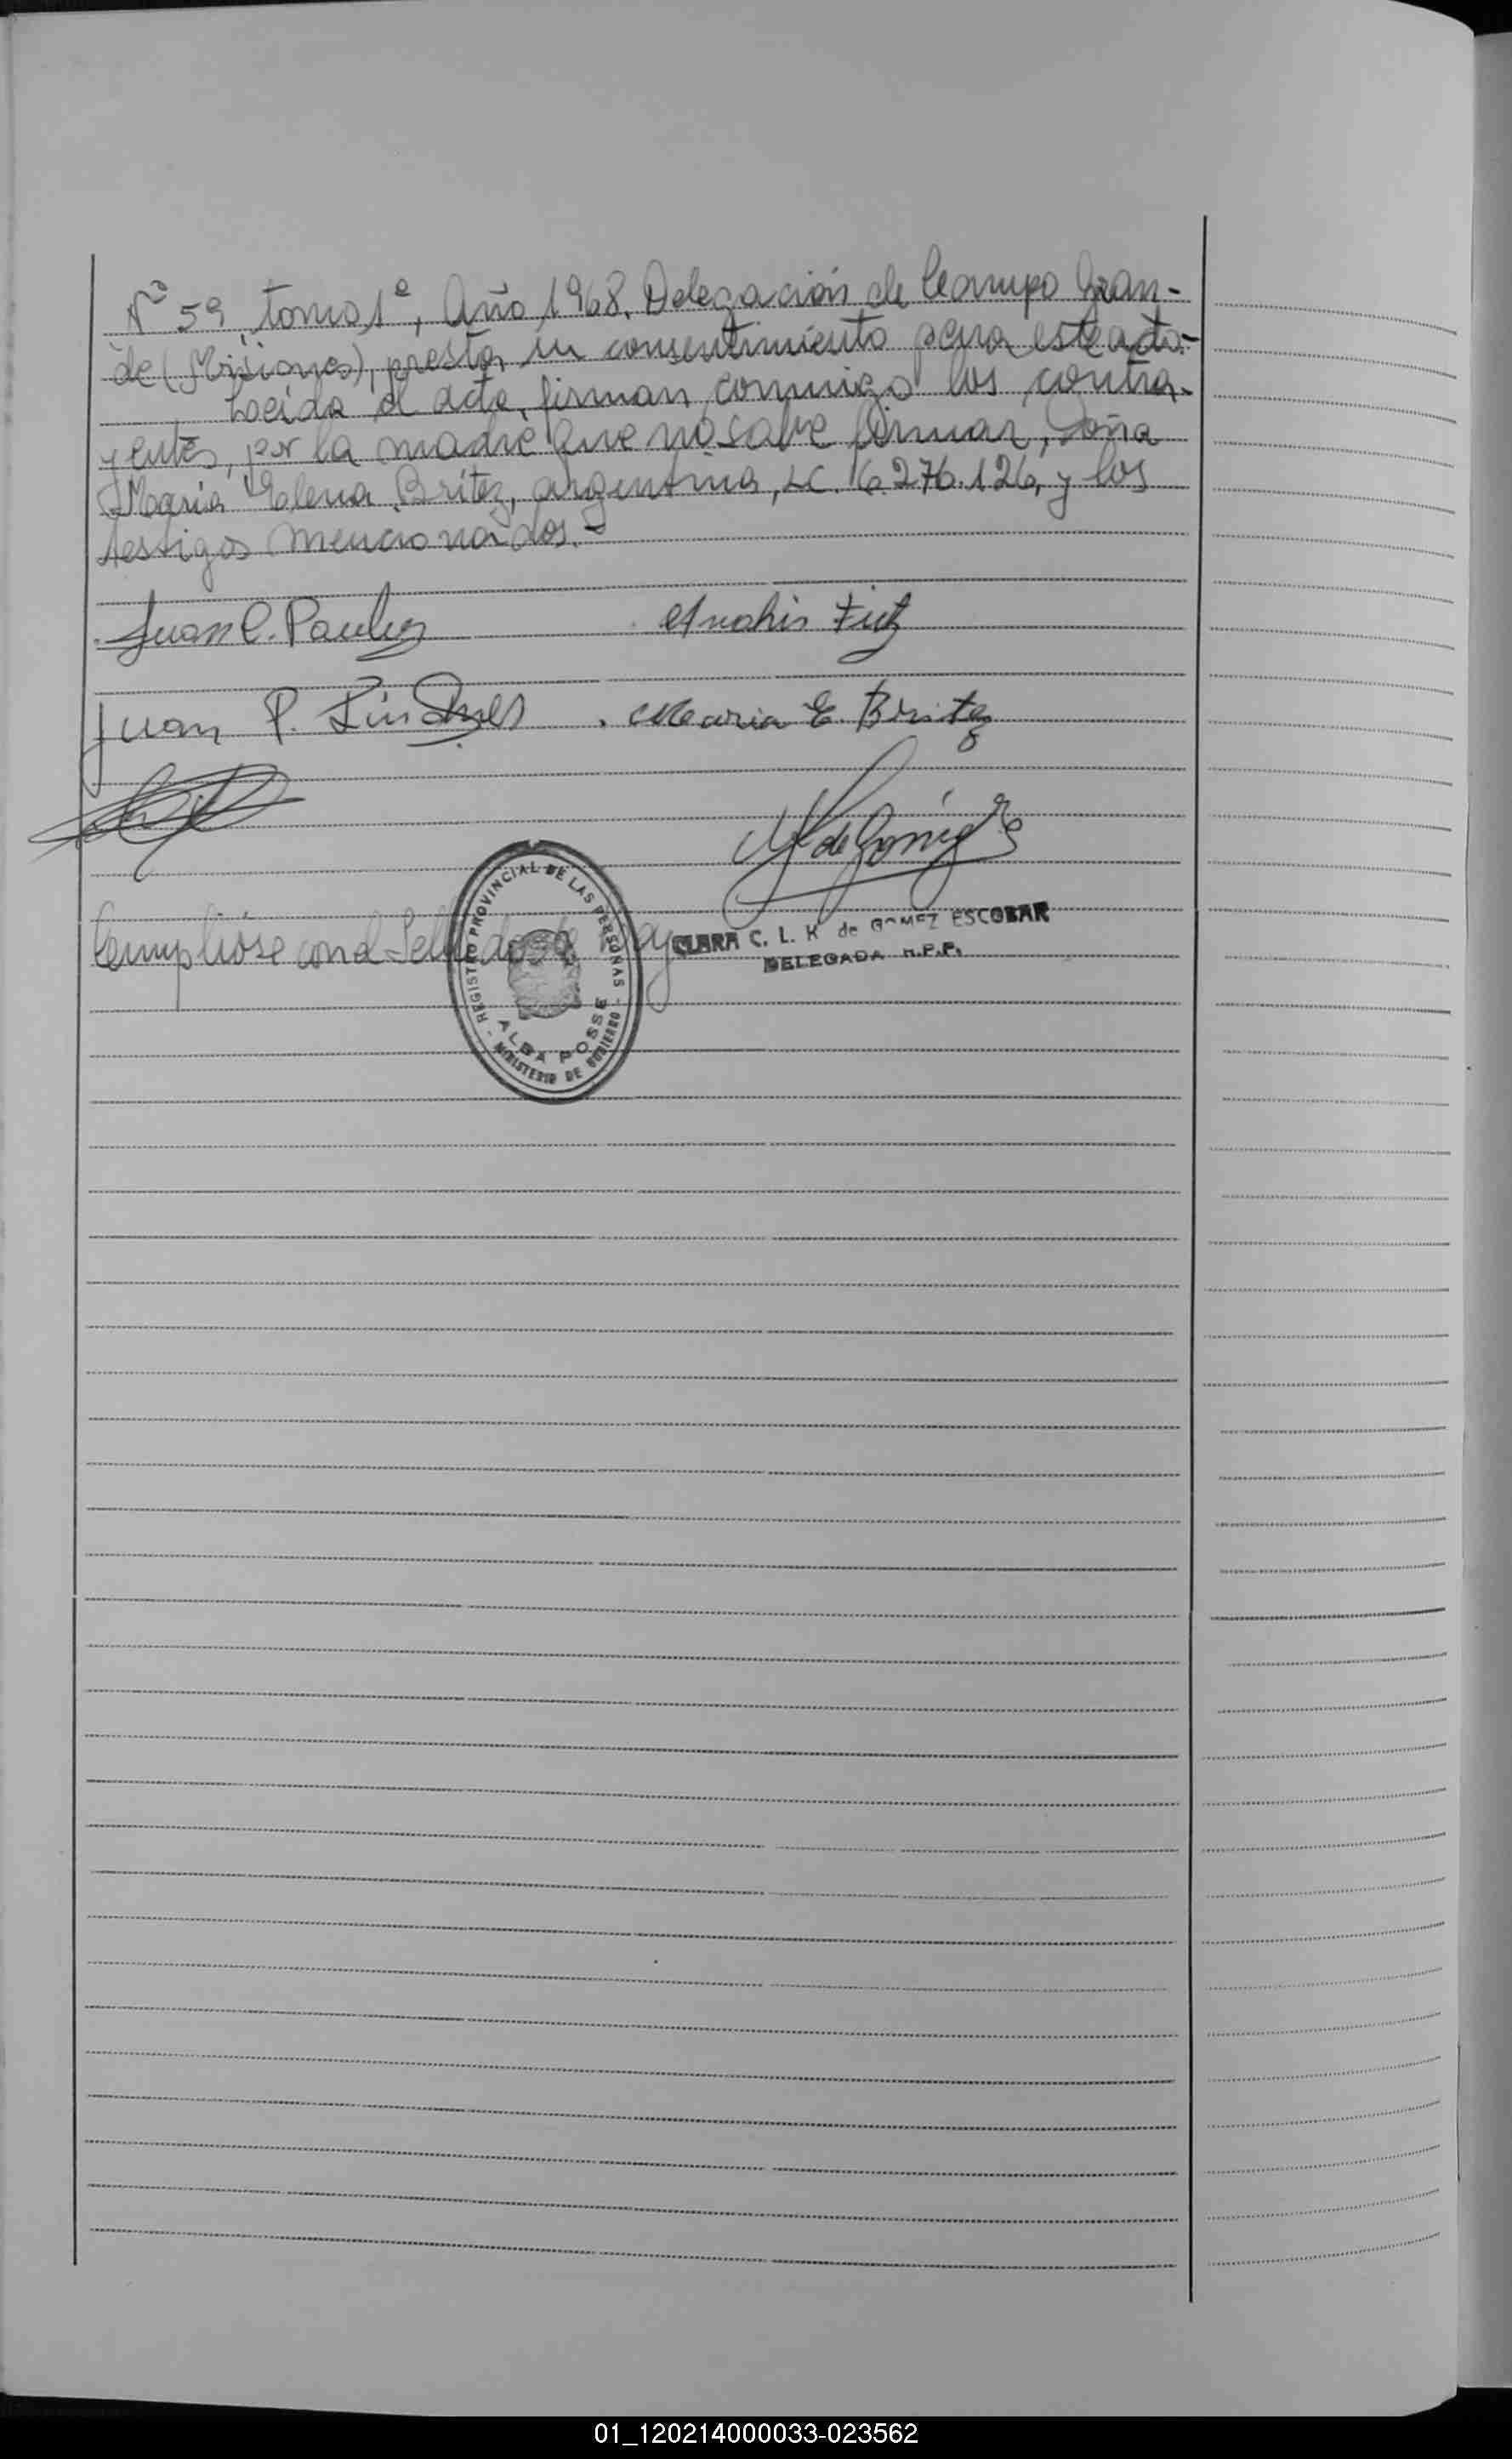 Nº 59, tomo 1º, Año 1968. Delegación de Campo Gran-
de (Misiones), presta su consentimiento para este acto.-
Leída el acta, firman conmigo los contra-
yentes, por la madre que no sabe firmar, Doña
María Elena Britez, argentina, LC. 6.276.126, y los
testigos mencionados.-
Juan C. Paulus
Anahir Fitz
Juan P.
Maria E. Britez
de Gomez E
CLARA C. L. K de GOMEZ ESCOBAR
DELEGADA R.P.P.
Cumplióse con el Sellado de Ley
REGISTRO PROVINCIAL DE LAS PERSONAS - MINISTERIO DE GOBIERNO -
ALBA POSSE
01_120214000033-023562